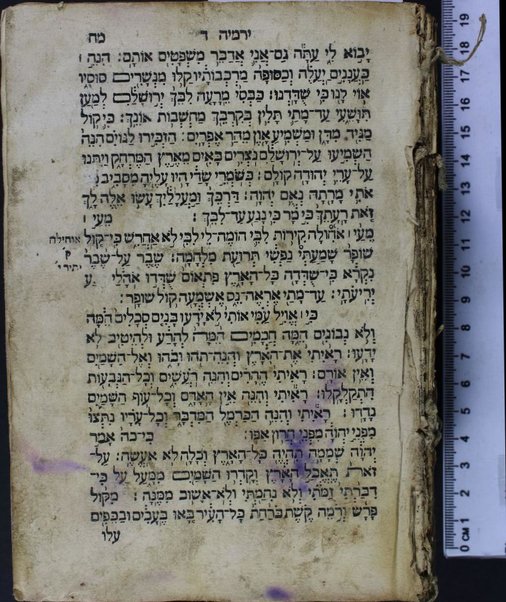 ירמיה ד מח
יָבוֹא לִי עַתָּה גַּם־אֲנִי אֲדַבֵּר מִשְׁפָּטִים אוֹתָם׃ הִנֵּה ׀
כַּעֲנָנִים יַעֲלֶה וְכַסּוּפָה מַרְכְּבוֹתָיו קַלּוּ מִנְּשָׁרִים סוּסָיו
אוֹי לָנוּ כִּי שֻׁדָּדְנוּ׃ כַּבְּסִי מֵרָעָה לִבֵּךְ יְרוּשָׁלַ͏ִם לְמַעַן
תִּוָּשֵׁעִי עַד־מָתַי תָּלִין בְּקִרְבֵּךְ מַחְשְׁבוֹת אוֹנֵךְ׃ כִּי קוֹל
מַגִּיד מִדָּן וּמַשְׁמִיעַ אָוֶן מֵהַר אֶפְרָיִם׃ הַזְכִּירוּ לַגּוֹיִם הִנֵּה
הַשְׁמִיעוּ עַל־יְרוּשָׁלַ͏ִם נֹצְרִים בָּאִים מֵאֶרֶץ הַמֶּרְחָק וַיִּתְּנוּ
עַל־עָרֵי יְהוּדָה קוֹלָם׃ כְּשֹׁמְרֵי שָׂדַי הָיוּ עָלֶיהָ מִסָּבִיב
אֹתִי מָרָתָה נְאֻם יְהוָה׃ דַּרְכֵּךְ וּמַעֲלָלַיִךְ עָשׂוֹ אֵלֶּה לָךְ
זֹאת רָעָתֵךְ כִּי מָר כִּי נָגַע עַד־לִבֵּךְ׃ מֵעַי ׀
מֵעַי ׀ אֹחוּלָה קִירוֹת לִבִּי הוֹמֶה־לִּי לִבִּי לֹא אַחֲרִישׁ כִּי־קוֹל אוחילה
שׁוֹפָר שָׁמַעַתְּי נַפְשִׁי תְּרוּעַת מִלְחָמָה׃ שֶׁבֶר עַל־שֶׁבֶר ק
נִקְרָא כִּי־שֻׁדְּדָה כָּל־הָאָרֶץ פִּתְאוֹם שֻׁדְּדוּ אֹהָלַי יתיר י׳
יְרִיעֹתָי׃ עַד־מָתַי אֶרְאֶה־נֵּס אֶשְׁמְעָה קוֹל שׁוֹפָר׃
כִּי ׀ אֱוִיל עַמִּי אוֹתִי לֹא יָדָעוּ בָּנִים סְכָלִים הֵמָּה
וְלֹא נְבוֹנִים הֵמָּה חֲכָמִים הֵמָּה לְהָרַע וּלְהֵיטִיב לֹא
יָדָעוּ׃ רָאִיתִי אֶת־הָאָרֶץ וְהִנֵּה־תֹהוּ וָבֹהוּ וְאֶל־הַשָּׁמַיִם
וְאֵין אוֹרָם׃ רָאִיתִי הֶהָרִים וְהִנֵּה רֹעֲשִׁים וְכָל־הַגְּבָעוֹת
הִתְקַלְקָלוּ׃ רָאִיתִי וְהִנֵּה אֵין הָאָדָם וְכָל־עוֹף הַשָּׁמַיִם
נָדָדוּ׃ רָאִיתִי וְהִנֵּה הַכַּרְמֶל הַמִּדְבָּר וְכָל־עָרָיו נִתְּצוּ
מִפְּנֵי יְהוָה מִפְּנֵי חֲרוֹן אַפּוֹ׃ כִּי־כֹה אָמַר
יְהוָה שְׁמָמָה תִהְיֶה כָּל־הָאָרֶץ וְכָלָה לֹא אֶעֱשֶׂה׃ עַל־
זֹאת תֶּאֱבַל הָאָרֶץ וְקָדְרוּ הַשָּׁמַיִם מִמָּעַל עַל כִּי־
דִבַּרְתִּי זַמֹּתִי וְלֹא נִחַמְתִּי וְלֹא־אָשׁוּב מִמֶּנָּה׃ מִקּוֹל
פָּרָשׁ וְרֹמֵה קֶשֶׁת בֹּרַחַת כָּל־הָעִיר בָּאוּ בֶּעָבִים וּבַכֵּפִים
עלו
0 CM 1 2 3 4 5 6 7 8 9 10 11 12 13 14 15 16 17